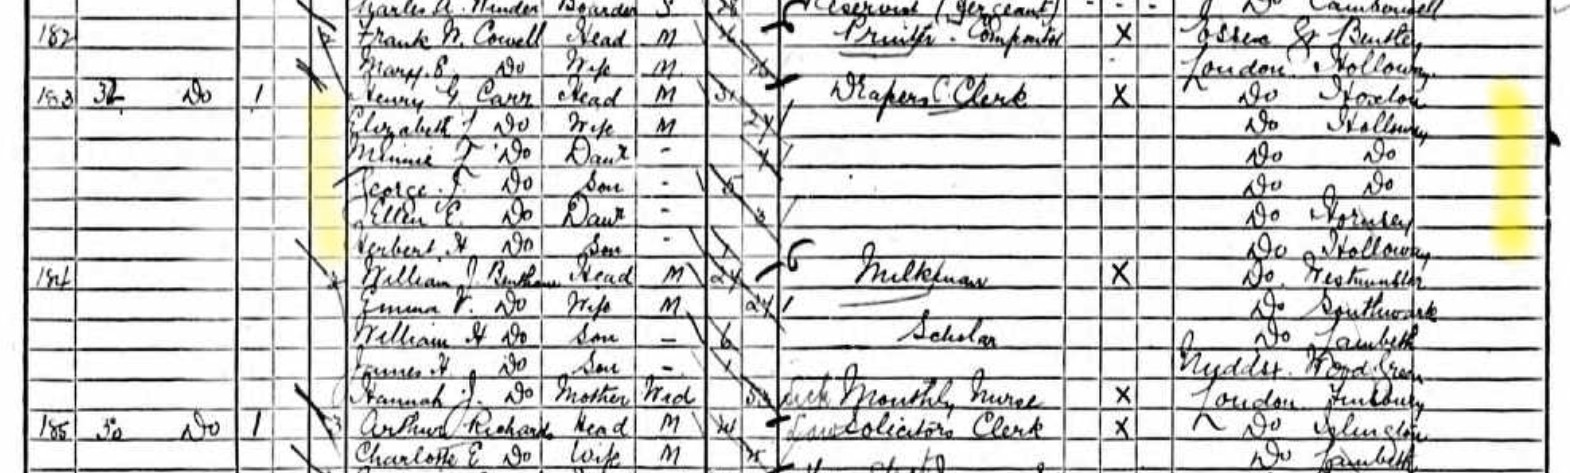 Charles A. Winder Boarder S 28 Reservist (Sergeant) Do Camberwell
182 Frank N. Cowell Head M Printer - Compositor X Essex Gt Bentley
Mary E. Do Wife M London Holloway
183 32 Do 1 Henry G Carr Head M 31 Drapers Clerk X Do Hoxton
Elizabeth Do Wife M Do Holloway
Minnie F Do Daur - Do Do
George F. Do Son - 5 Do Do
Ellen E. Do Daur - 3 Do Hornsey
Herbert H Do Son - 1 Do Holloway
184 William J Head M 24 Milkman X Do Westminster
Emma V. Do Wife M 24 Do Southwark
William H Do Son - 6 Scholar Do Lambeth
James H. Do Son - 1 Middsx. Wood Green
Hannah J. Do Mother Wid Sick Monthly Nurse X London Finsbury
185 30 Do 1 Arthur Richards Head M Law Solicitors Clerk X Do Islington
Charlotte E Do Wife M Do Lambeth